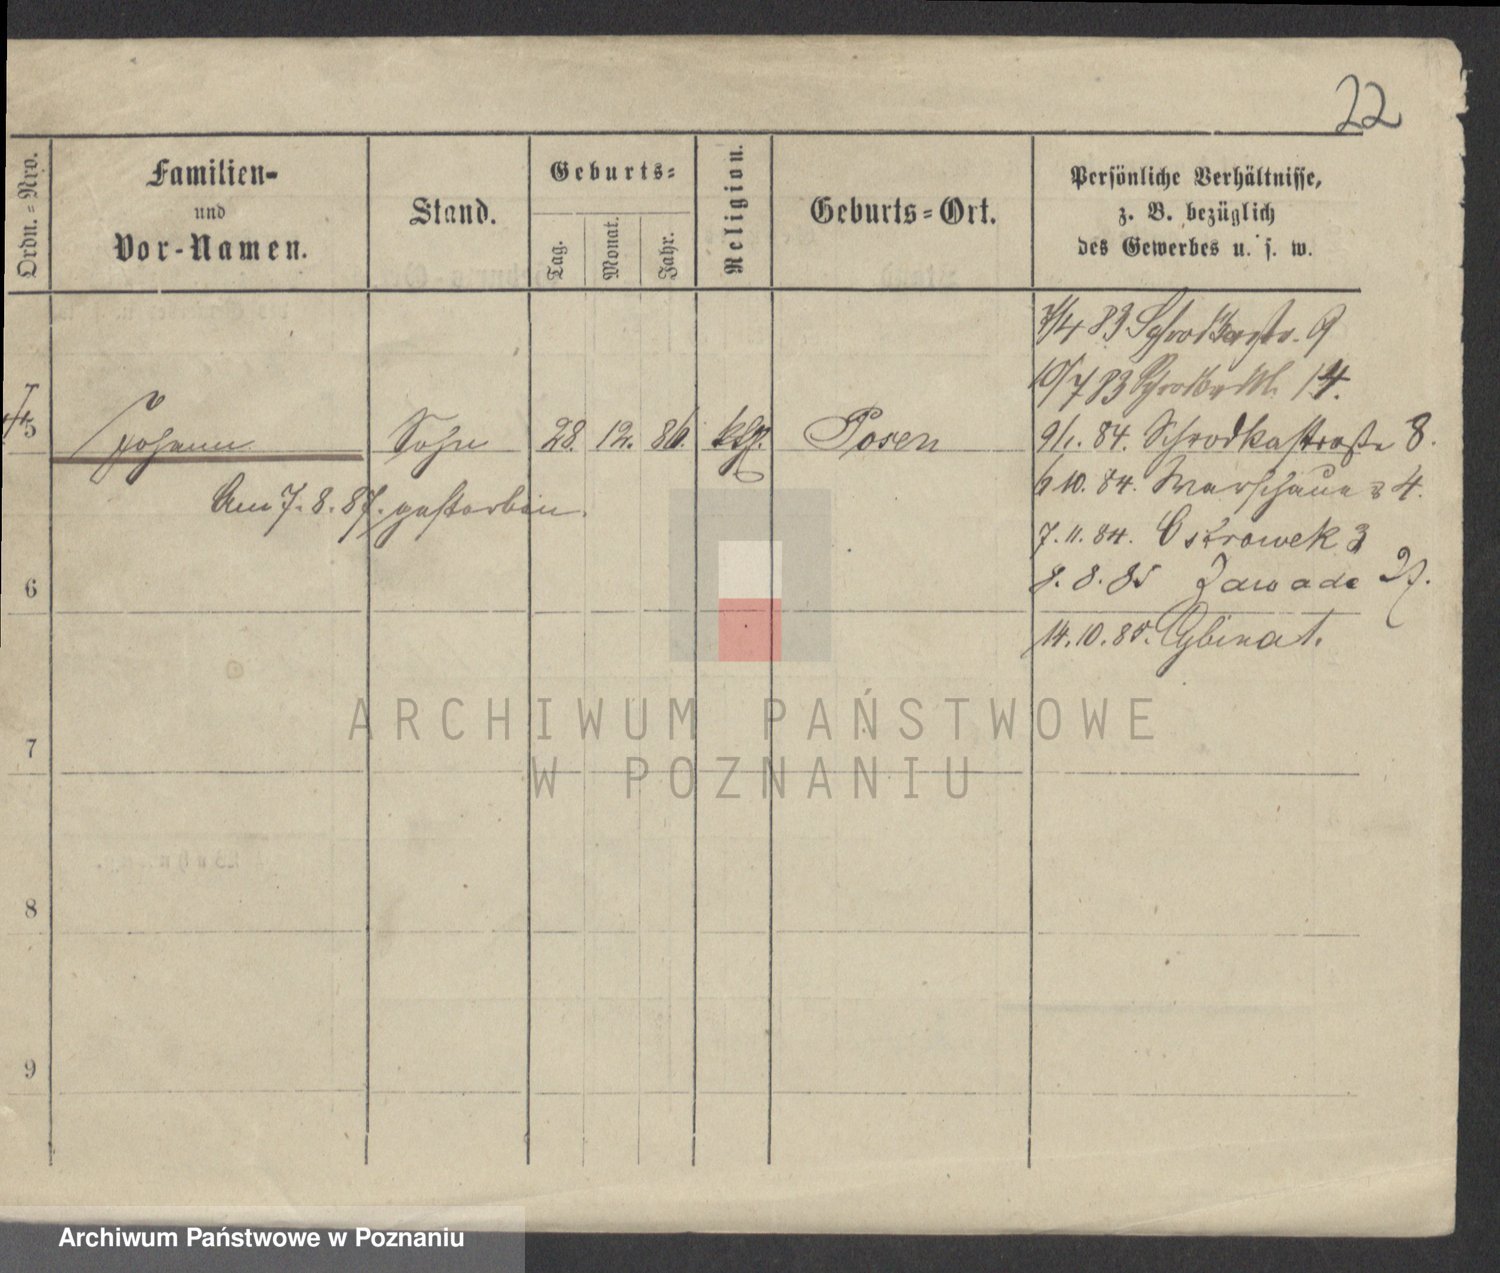 22
Ordn.=Nro.
Familien-
und
Vor-Namen.
Stand.
Geburts=
Tag.
Monat.
Jahr.
Religion.
Geburts=Ort.
Persönliche Verhältnisse,
z. B. bezüglich
des Gewerbes u. s. w.
7/4 83 Schrodkastr. 9
10/7 83 14.
5 Johann Sohn 28. 12. 86. kth. Posen
9/1. 84. Schrodkastraße 8.
Am 7. 8. 87. gestorben.
6 10. 84. Warschauer 4.
7. 11. 84. Ostrowek 3
8. 8. 85 Zawade 27.
6
14. 10. 85. Cybinat.
7
8
9
ARCHIWUM PAŃSTWOWE
W POZNANIU
Archiwum Państwowe w Poznaniu